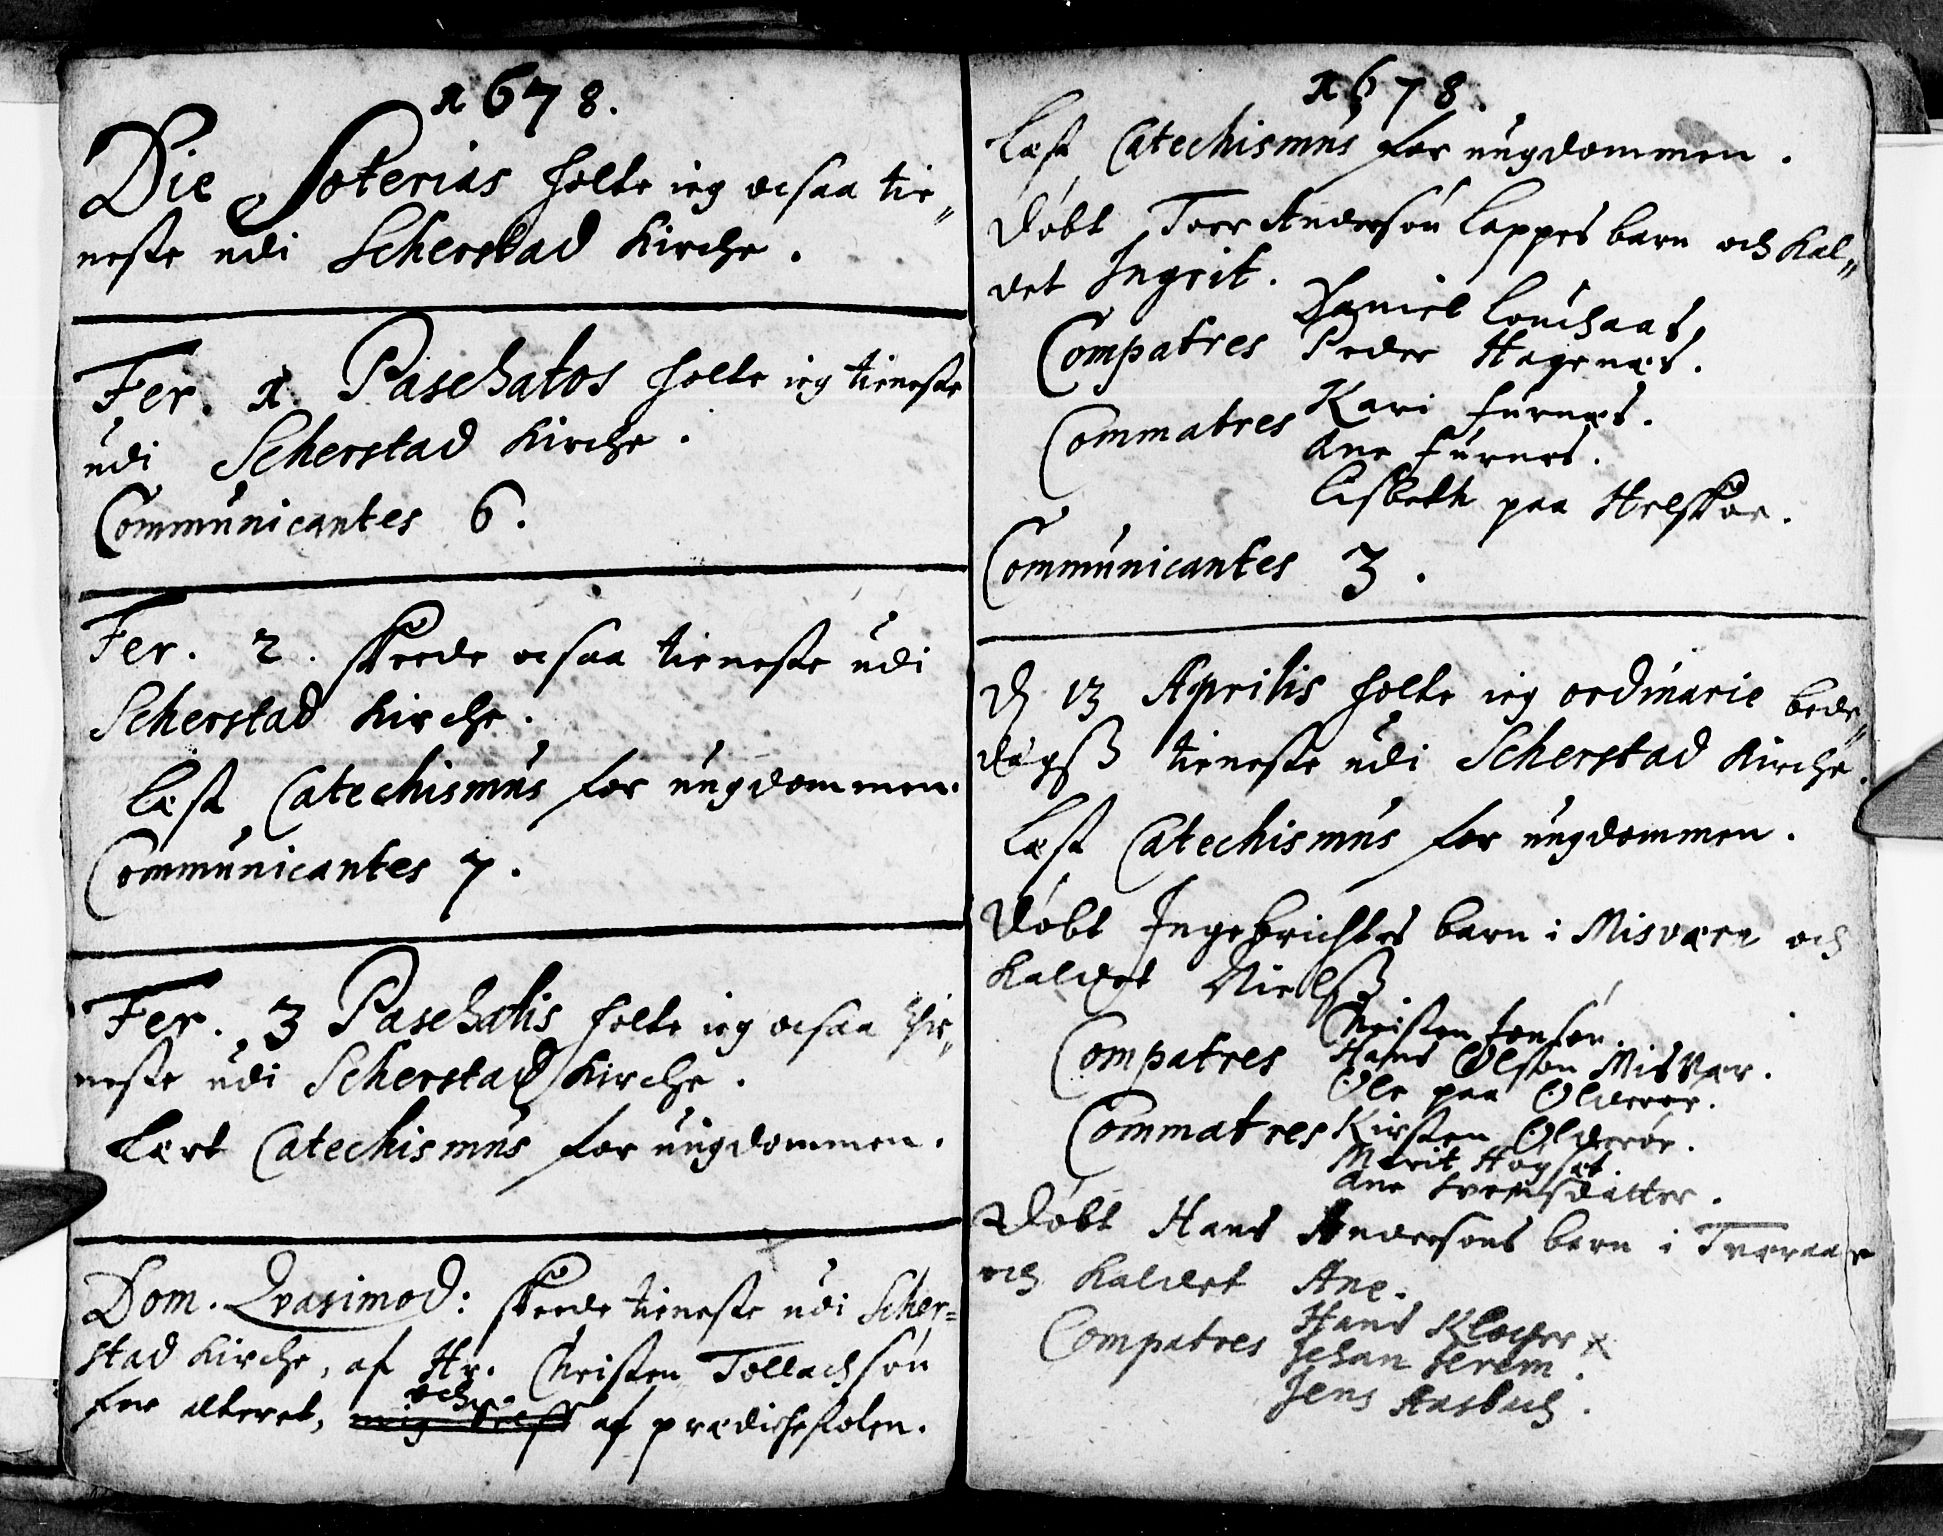 1678.
Die Soterias holte ieg ocsaa tie„
neste udi Scherstad Kirche.
Fer. 1. Paschatos holte ieg tieneste
udi Scherstad Kirche.
Communicantes 6.
Fer. 2. skeede ocsaa tieneste udi
Scherstad Kirche.
Læst Catechismus for ungdommen.
Communicantes 7.
Fer. 3 Paschatis holte ieg ocsaa thie„
neste udi Scherstad Kirche.
Lært Catechismus for ungdommen.
Dom. Qvasimod: skeede tieneste udi Scher=
stad Kirche, af Hr. Christen Tollachsøn
och
for alteret, mig selff af prædichestolen.
1678.
Læst Catechismus for ungdommen.
Døbt Toer Andersøn Lappes barn och kal„
det Ingrit.
Compatres Daniel
Peder Hagenæs.
Commatres Kari Furnæs.
Ane Furnæs.
Lisbeth paa
Communicantes 3.
D 13 Aprilis holte ieg ordinarie bede„
dagss tieneste udi Scherstad Kirche.
Læst Catechismus for ungdommen.
Døbt Ingebrichtes barn i Misvær och
kaldet Nielss
Compatres Christen Jonsøn.
Hans Olsøn Misvær.
Ole paa Olderøe.
Commatres Kirsten Olderøe.
Marit Hogset.
Ane Svensdatter.
Døbt Hans Andersøns barn i Tveraae
och kaldet Ane.
Compatres Hans Kløcher x
Johan Jerem.
Jens Aasbach.